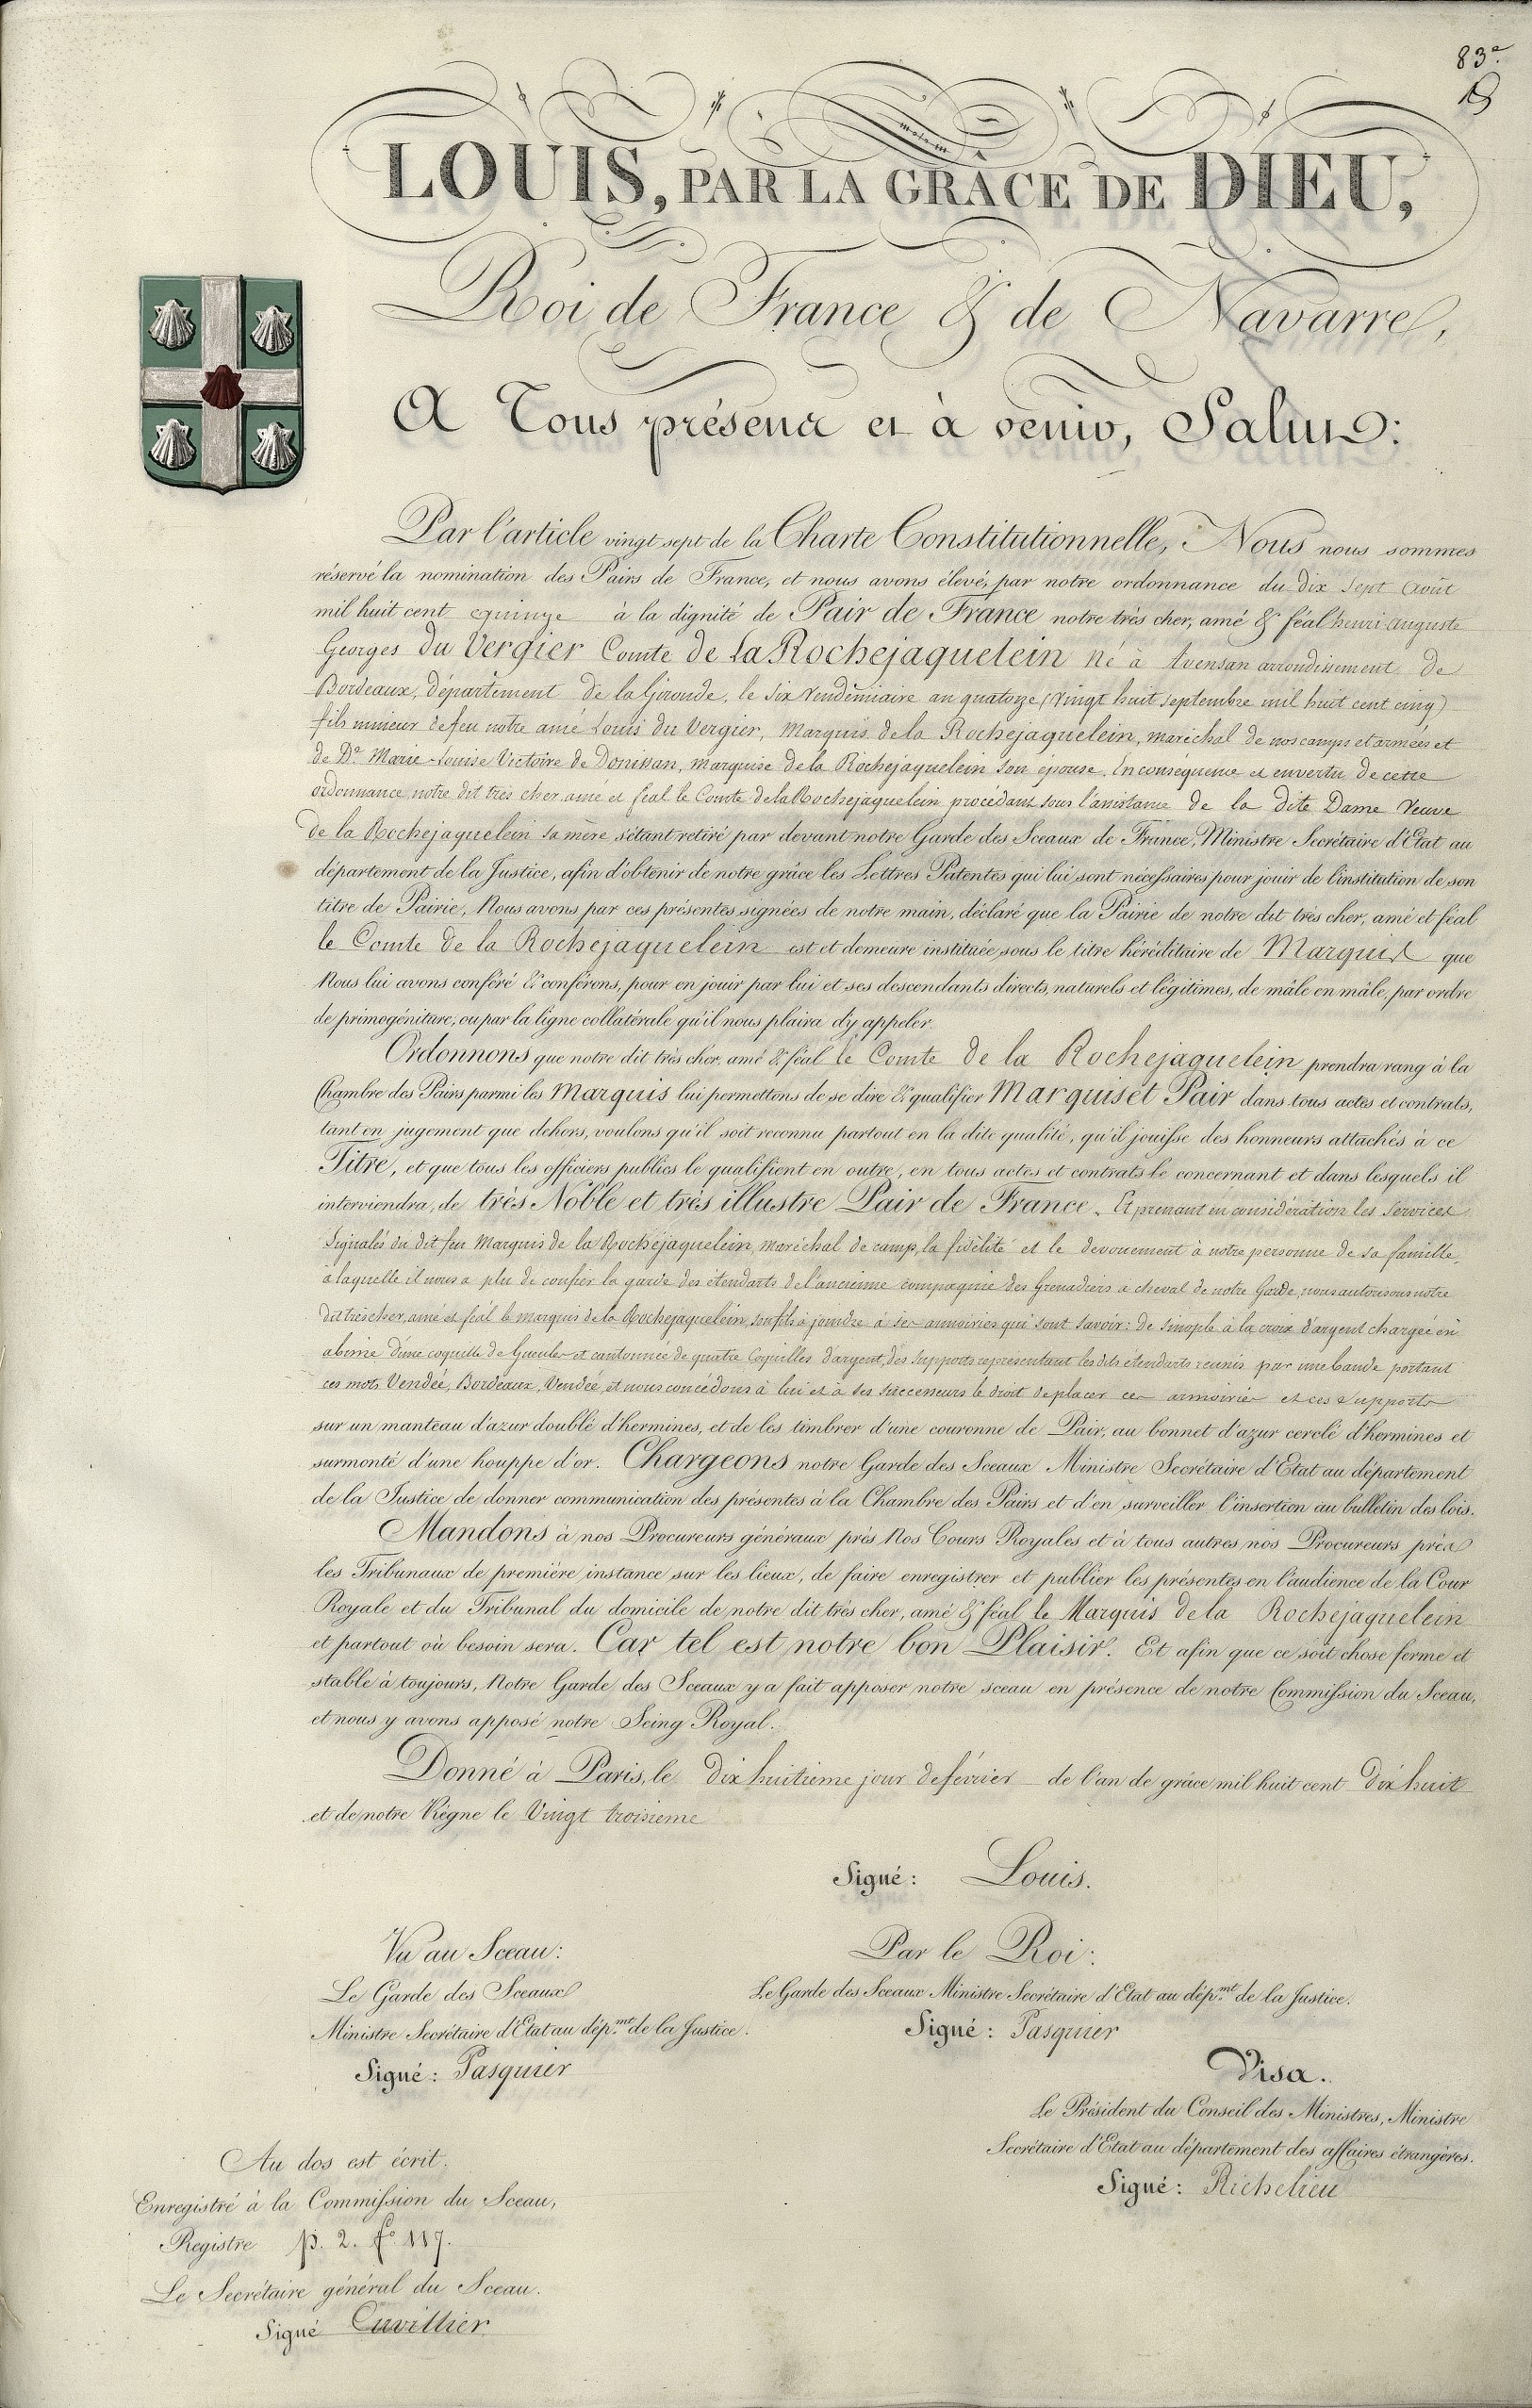 83e
LOUIS, PAR LA GRÂCE DE DIEU,
Roi de France & de Navarre,
A Tous présens et à venir, Salut:
Par l'article vingt sept de la Charte Constitutionnelle, Nous nous sommes
réservé la nomination des Pairs de France, et nous avons élevé, par notre ordonnance du dix sept Août
mil huit cent quinze à la dignité de Pair de France notre très cher, amé & féal henri auguste
Georges du Vergier Comte de La Rochejaquelein né à Avensan arrondissement de
Bordeaux, département de la Gironde, le six Vendémiaire an quatorze (vingt huit septembre mil huit cent cinq)
fils mineur de feu notre amé Louis du Vergier, Marquis de la Rochejaquelein, maréchal de nos camps et armées et
de De. Marie-Louise Victoire de Donissan, marquise de la Rochejaquelein son épouse. En conséquence et en vertu de cette
ordonnance, notre dit très cher, amé et féal le Comte de la Rochejaquelein procédant sous l'assistance de la dite Dame Veuve
de la Rochejaquelein sa mère s'étant retiré par devant notre Garde des Sceaux de France, Ministre Secrétaire d'Etat au
département de la Justice, afin d'obtenir de notre grâce les Lettres Patentes qui lui sont nécessaires pour jouir de l'institution de son
titre de Pairie, Nous avons par ces présentes signées de notre main, déclaré que la Pairie de notre dit très cher, amé et féal
le Comte de la Rochejaquelein est et demeure instituée sous le titre héréditaire de Marquis que
Nous lui avons conféré & conférons, pour en jouir par lui et ses descendants directs, naturels et légitimes, de mâle en mâle, par ordre
de primogéniture, ou par la ligne collatérale qu'il nous plaira d'y appeler.
Ordonnons que notre dit très cher, amé & féal le Comte de la Rochejaquelein prendra rang à la
Chambre des Pairs parmi les Marquis lui permettons de se dire & qualifier Marquis et Pair dans tous actes et contrats,
tant en jugement que dehors, voulons qu'il soit reconnu partout en la dite qualité, qu'il jouisse des honneurs attachés à ce
Titre, et que tous les officiers publics le qualifient en outre, en tous actes et contrats le concernant et dans lesquels il
interviendra, de très Noble et très illustre Pair de France. Et prenant en considération les services
signalés du dit feu Marquis de la Rochejaquelein, maréchal de camp, la fidélité et le dévouement à notre personne de sa famille,
à laquelle il nous a plu de confier la garde des étendarts de l'ancienne compagnie des Grenadiers à cheval de notre Garde, nous autorisons notre
dit très cher, amé et féal le marquis de la Rochejaquelein, son fils à joindre à ses armoiries qui sont savoir: de sinople à la croix d'argent chargée en
abime d'une coquille de Gueules et cantonnée de quatre Coquilles d'argent, des supports représentant les dits étendarts réunis par une bande portant
ces mots Vendée, Bordeaux, Vendée, et nous concédons à lui et à ses successeurs le droit de placer ces armoiries et ces supports
sur un manteau d'azur doublé d'hermines, et de les timbrer d'une couronne de Pair, au bonnet d'azur cerclé d'hermines et
surmonté d'une houppe d'or. Chargeons notre Garde des Sceaux Ministre Secrétaire d'Etat au département
de la Justice de donner communication des présentes à la Chambre des Pairs et d'en surveiller l'insertion au bulletin des lois.
Mandons à nos Procureurs généraux près Nos Cours Royales et à tous autres nos Procureurs près
les Tribunaux de première instance sur les lieux, de faire enregistrer et publier les présentes en l'audience de la Cour
Royale et du Tribunal du domicile de notre dit très cher, amé & féal le Marquis de la Rochejaquelein
et partout où besoin sera. Car tel est notre bon Plaisir. Et afin que ce soit chose ferme et
stable à toujours, Notre Garde des Sceaux y a fait apposer notre sceau en présence de notre Commission du Sceau,
et nous y avons apposé notre Seing Royal.
Donné à Paris, le dix huitieme jour de février de l'an de grâce mil huit cent dix huit
et de notre Règne le Vingt troisieme
Signé: Louis.
Vu au Sceau:
Le Garde des Sceaux
Ministre Secrétaire d'Etat au dép.mt de la Justice.
Signé: Pasquier
Par le Roi:
Le Garde des Sceaux Ministre Secrétaire d'Etat au dép.mt de la Justice.
Signé: Pasquier
Visa.
Le Président du Conseil des Ministres, Ministre
Secrétaire d'Etat au département des affaires étrangères.
Signé: Richelieu
Au dos est écrit.
Enregistré à la Commission du Sceau,
Registre p. 2. fo. 117.
Le Secrétaire général du Sceau.
Signé Cuvillier